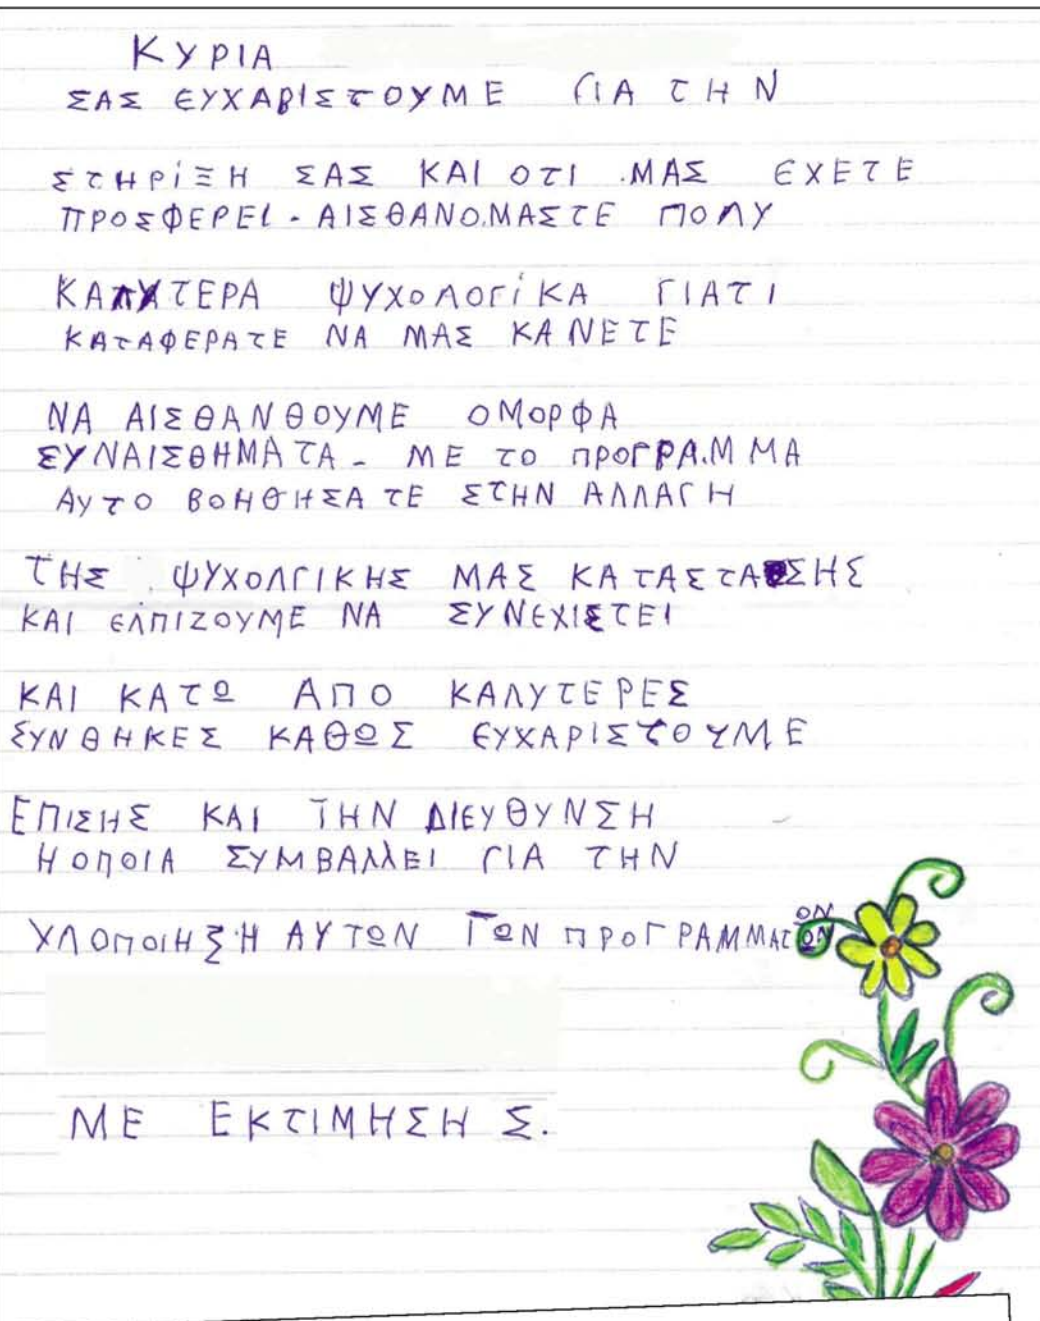 ΚΥΡΙΑ
ΣΑΣ ΕΥΧΑΡΙΣΤΟΥΜΕ ΓΙΑ ΤΗΝ
ΣΤΗΡίΞΗ ΣΑΣ ΚΑΙ ΟΤΙ ΜΑΣ ΕΧΕΤΕ
ΠΡΟΣΦΕΡΕΙ - ΑΙΣΘΑΝΟΜΑΣΤΕ ΠΟΛΥ
ΚΑΛΥΤΕΡΑ ΨΥΧΟΛΟΓίΚΑ ΓΙΑΤΙ
ΚΑΤΑΦΕΡΑΤΕ ΝΑ ΜΑΣ ΚΑΝΕΤΕ
ΝΑ ΑΙΣΘΑΝΘΟΥΜΕ ΟΜΟΡΦΑ
ΣΥΝΑΙΣΘΗΜΑΤΑ - ΜΕ ΤΟ ΠΡΟΓΡΑΜΜΑ
ΑΥΤΟ ΒΟΗΘΗΣΑΤΕ ΣΤΗΝ ΑΛΛΑΓΗ
ΤΗΣ ΨΥΧΟΛΓΙΚΗΣ ΜΑΣ ΚΑΤΑΣΤΑΣΗΣ
ΚΑΙ ΕΛΠΙΖΟΥΜΕ ΝΑ ΣΥΝΕΧΙΣΤΕΙ
ΚΑΙ ΚΑΤΩ ΑΠΟ ΚΑΛΥΤΕΡΕΣ
ΣΥΝΘΗΚΕΣ ΚΑΘΩΣ ΕΥΧΑΡΙΣΤΟΥΜΕ
ΕΠΙΣΗΣ ΚΑΙ ΤΗΝ ΔΙΕΥΘΥΝΣΗ
Η ΟΠΟΙΑ ΣΥΜΒΑΛΛΕΙ ΓΙΑ ΤΗΝ
ΥΛΟΠΟΙΗΣΗ ΑΥΤΩΝ ΤΩΝ ΠΡΟΓΡΑΜΜΑΤΩΝ
ΜΕ ΕΚΤΙΜΗΣΗ Σ.